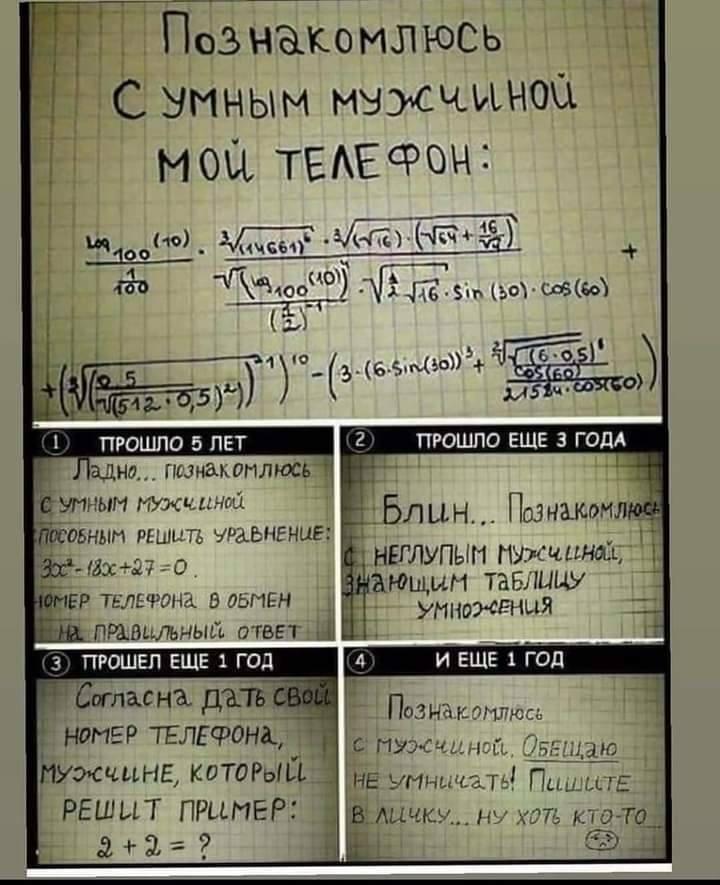 Познакомлюсь
с умным мужчиной
мой телефон:
log₁₀₀(10) / (1/100) · ∛(14661)⁶ · ∛(√16) · (√64 + 16/√
√(log₁₀₀(10)) / (1/2)⁻¹ · √ √16 · sin(30) · cos(60) +
+ 0,5 / √(512 · 0,5)²)) ¹⁰ − (3 · (6 · sin(30))³ + √(6 · 0,5) cos(60) / 21584 · cos(60))
1 ПРОШЛО 5 ЛЕТ
Ладно... познакомлюсь
с умным мужчиной
способным решить уравнение:
3x²-18x+27=0.
номер телефона в обмен
на правильный ответ
2 ПРОШЛО ЕЩЕ 3 ГОДА
Блин... Познакомлюсь
с неглупым мужчиной,
знающим таблицу
умножения
3 ПРОШЕЛ ЕЩЕ 1 ГОД
Согласна дать свой
номер телефона,
мужчине, который
решит пример:
2 + 2 = ?
4 И ЕЩЕ 1 ГОД
Познакомлюсь
с мужчиной. Обещаю
не умничать! Пишите
в личку... ну хоть кто-то